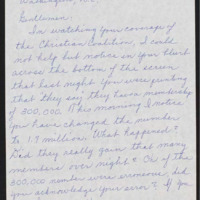 Washington, D.C.
Gentlemen:
In watching your coverage of
the Christian Coalition, I could
not help but notice on your chart
across the bottom of the screen
that last night you were quoting
that they say they have membership
of 500,000. This morning I notice
you have changed the number
to 1.9 million. What happened?
Did they really gain that many
members over night? Or if the
500,000 number were erroneous, did
you acknowledge your error? If you